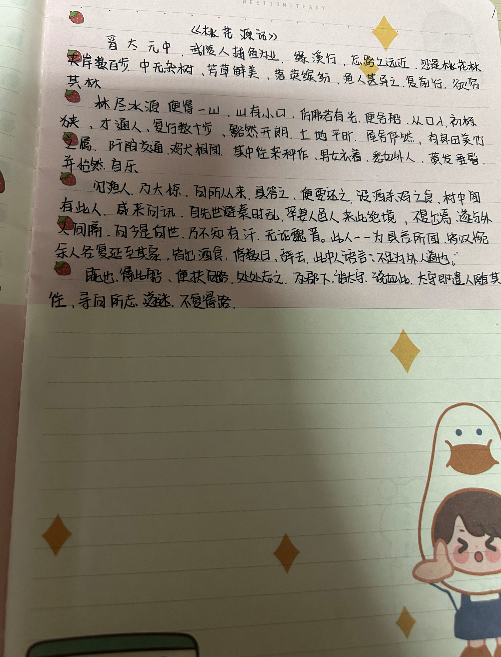 《桃花源记》
晋太元中，武陵人捕鱼为业，缘溪行，忘路之远近，忽逢桃花林
夹岸数百步，中无杂树，芳草鲜美，落英缤纷，渔人甚异之，复前行，欲穷
其林
林尽水源，便得一山，山有小口，仿佛若有光，便舍船，从口入，初极
狭，才通人，复行数十步，豁然开朗，土地平旷，屋舍俨然，有良田美竹
之属，阡陌交通，鸡犬相闻，其中往来种作，男女衣着，悉如外人，黄发垂髫
并怡然自乐
见渔人，乃大惊，问所从来，具答之，便要还之，设酒杀鸡之食，村中闻
有此人，咸来问讯，自先世避秦时乱，率妻人邑人来此绝境，不复出焉，遂与外
人间隔，问今是何世，乃不知有汉，无论魏晋。此人一一为具言所闻，皆叹惋
余人各复延至其家，皆出酒食，停数日，辞去，此中人语言：不足为外人道也。
既出，得其船，便扶向路，处处志之，及郡下，诣太守，说如此，太守即遣人随其
往，寻向所志，遂迷，不复得路.